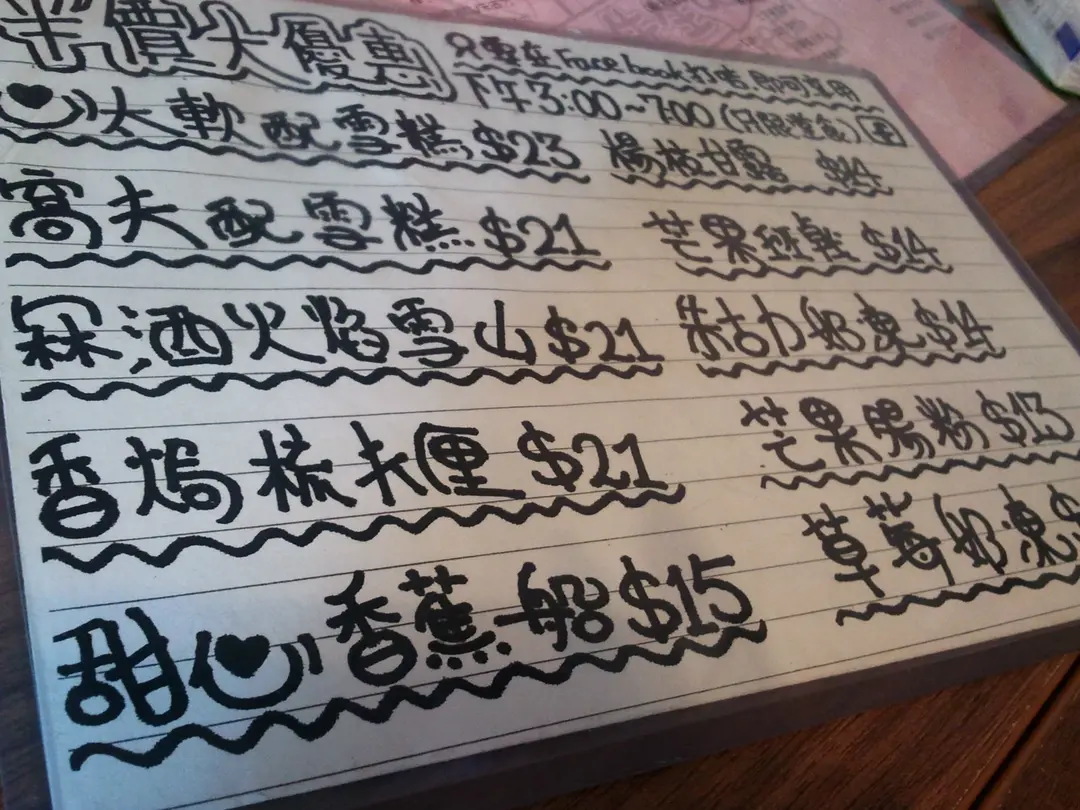 半價大優惠
只要在Facebook打咭即可享用
下午3:00~7:00 (只限堂食)
心太軟配雪糕 $23
楊枝甘露
窩夫配雪糕 $21
芒果班戟 $14
冧酒火焰雪山 $21
朱古力奶凍 $14
香焗梳夫厘 $21
芒果腸粉 $13
甜心香蕉船 $15
草莓奶凍